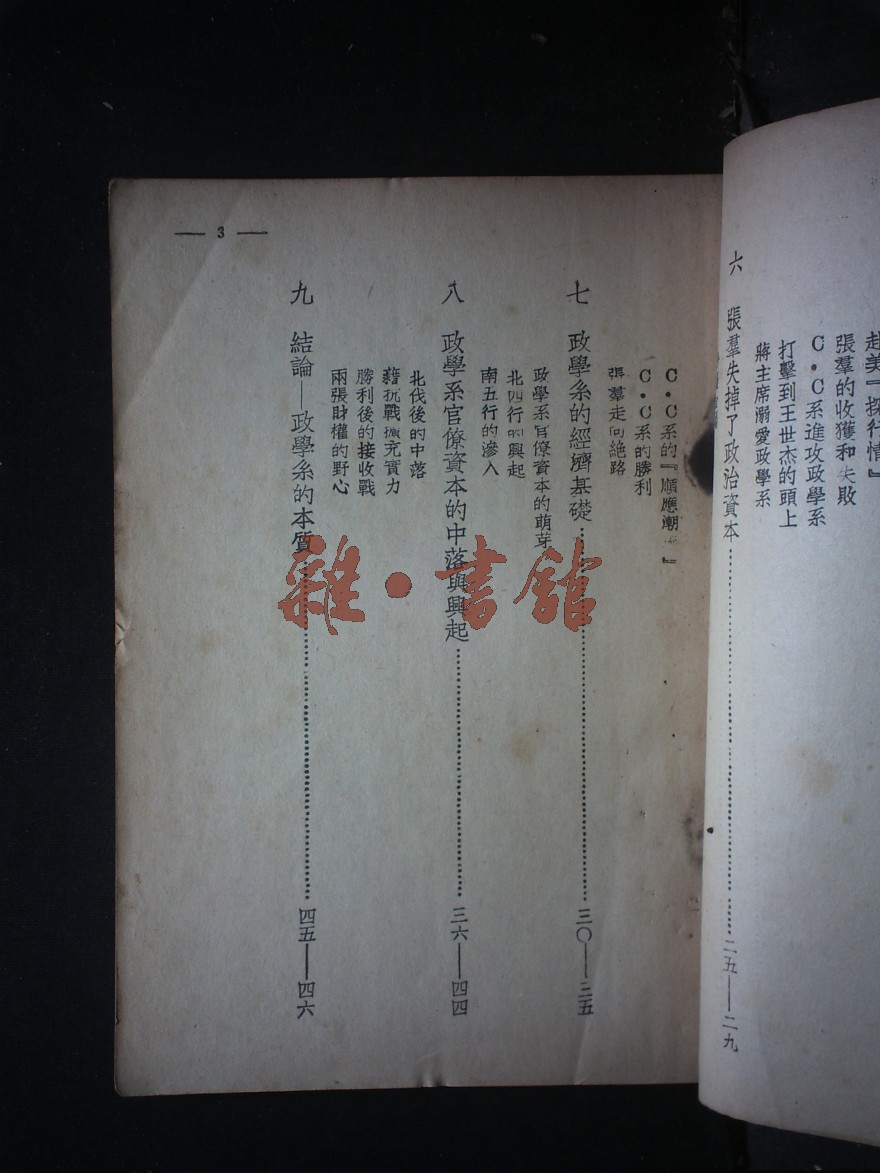 赴美『探行情』
張羣的收獲和失敗
C·C系進攻政學系
打擊到王世杰的頭上
蔣主席溺愛政學系
六 張羣失掉了政治資本……二五——二九
C·C系的『順應潮 』
C·C系的勝利
張羣走向絶路
七 政學系的經濟基礎……三〇——三五
政學系官僚資本的萌芽
北四行的興起
南五行的滲入
八 政學系官僚資本的中落與興起……三六——四四
北伐後的中落
藉抗戰擴充實力
勝利後的接收戰
兩張財權的野心
九 結論——政學系的本質……四五——四六
—— 3 ——
雜·書館